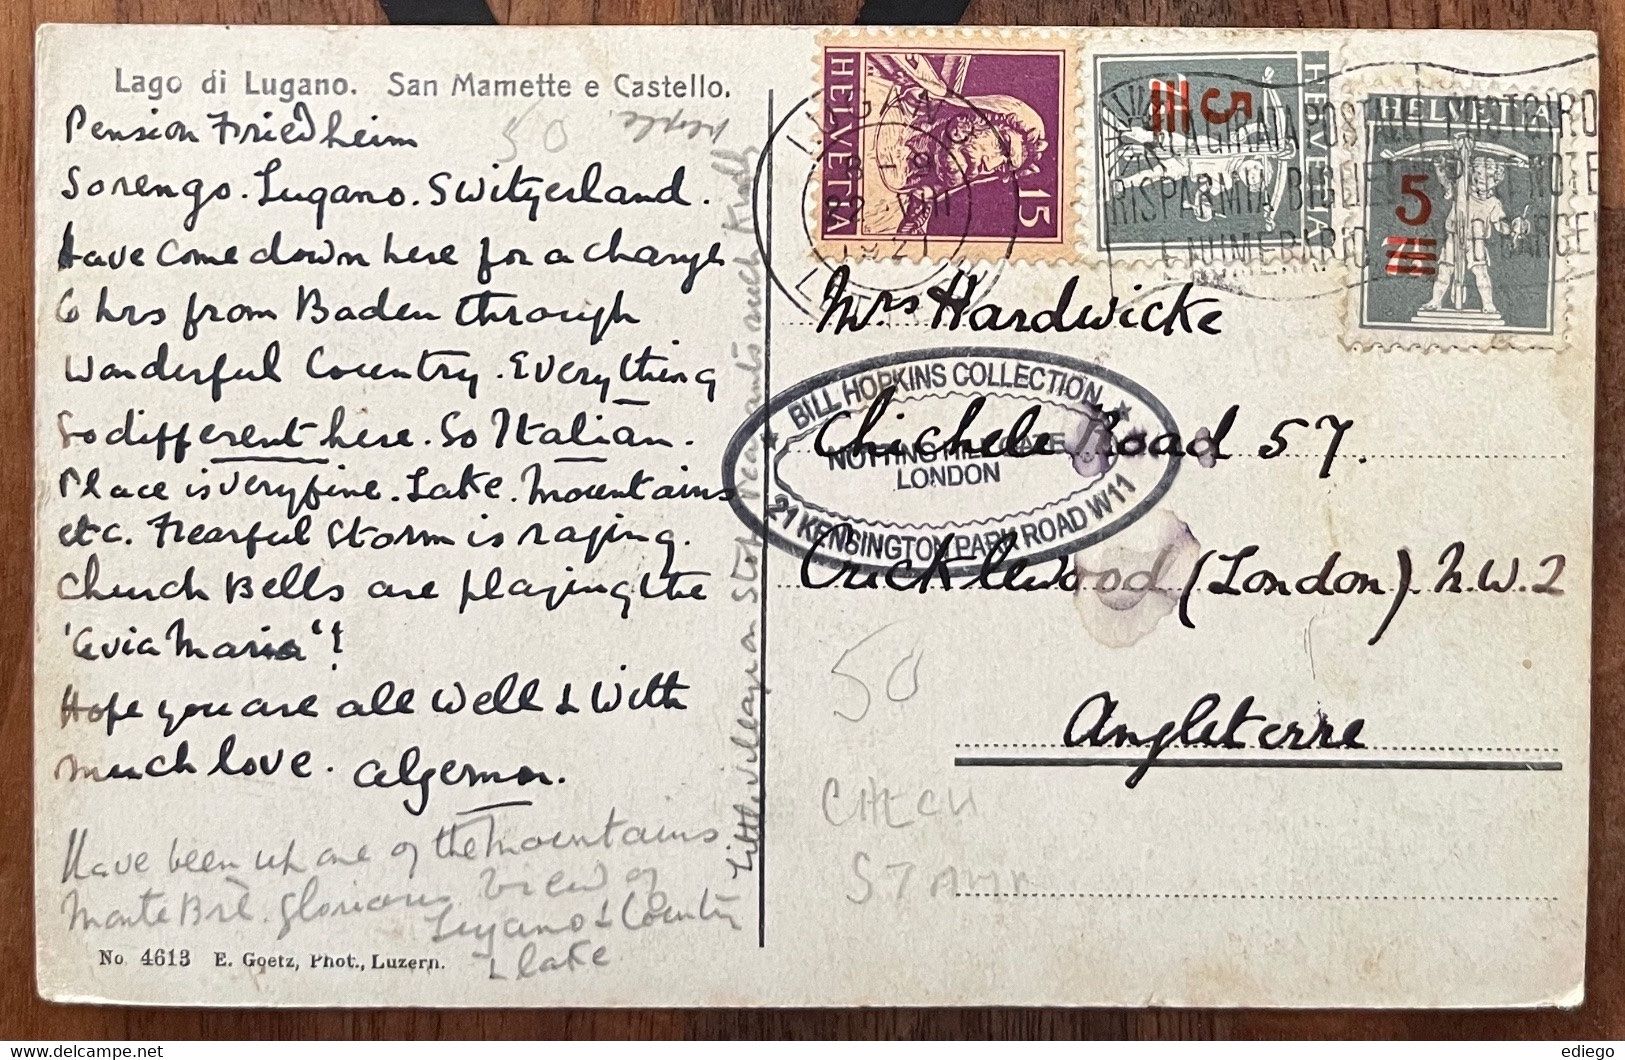 Lago di Lugano. San Mamette e Castello.
Pension Friedheim
Sorengo. Lugano. Switzerland.
Have come down here for a change
6 hrs from Baden through
Wonderful Country. Everything
So different here. So Italian.
Place is very fine. Lake. Mountains
etc. Fearful Storm is raging.
Church Bells are playing the
'Avia Maria'!
Hope you are all well & with
much love. Algernon.
Have been up one of the mountains
Monte Brè. Glorious view of
Lugano & Country
& lake
No 4613 E. Goetz, Phot., Luzern.
Little village on
people.
50
HELVETIA
15
HELVETIA
5
HELVETIA
5
7½
LUGANO
VIII
RISPARMIA
E NUMERARIO
Mrs Hardwicke
Chichele Road 57.
Cricklewood (London) N.W.2
Angleterre
BILL HOPKINS COLLECTION
NOTTING HILL GATE
LONDON
21 KENSINGTON PARK ROAD W11
50
CHECK
STAMP
ediego